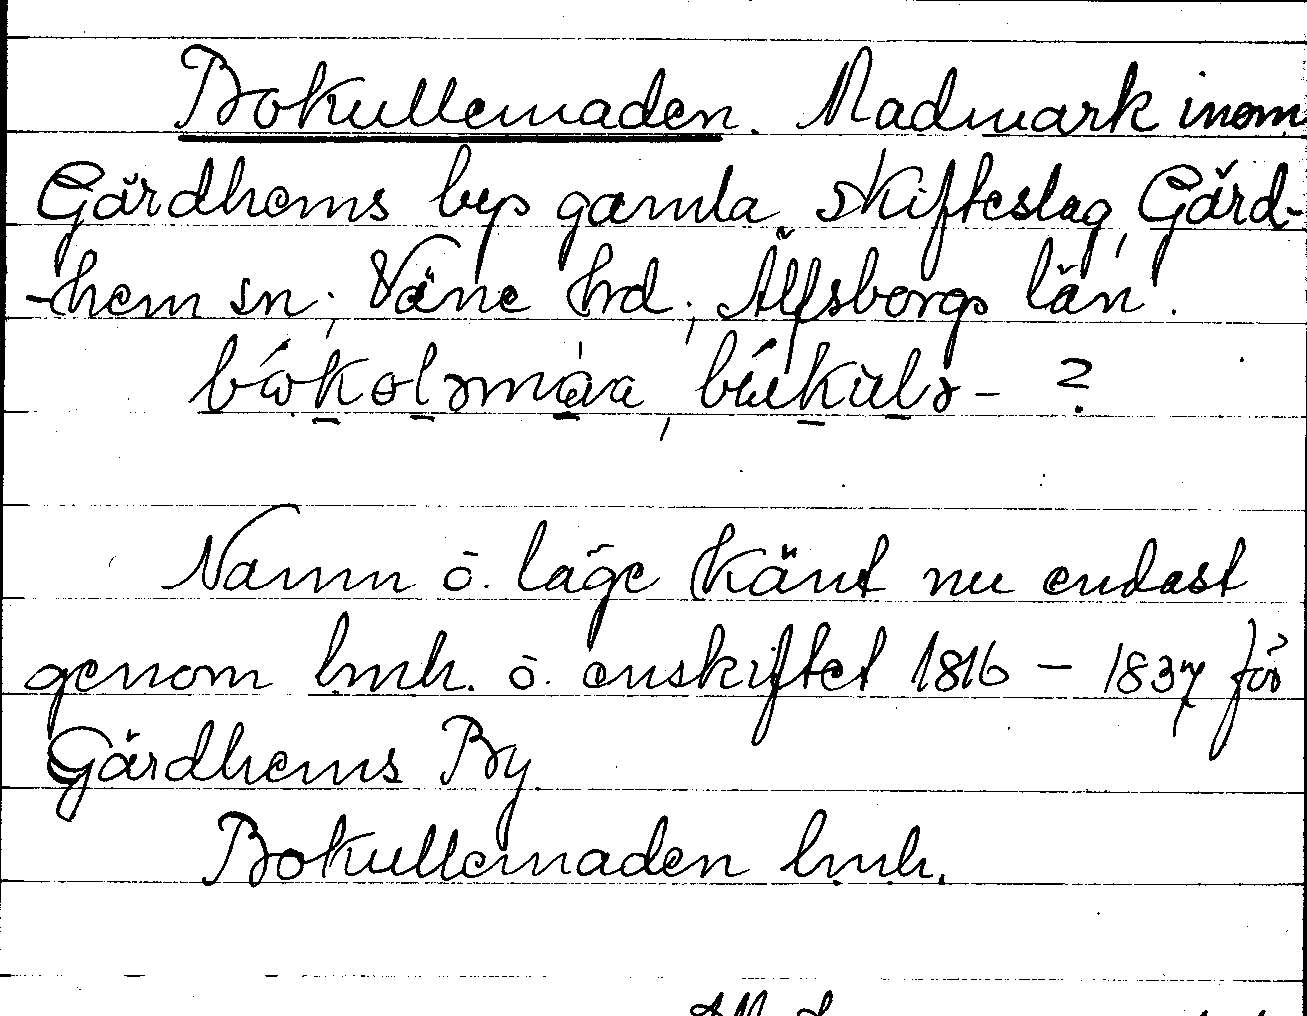 Bokullemaden. Madmark inom
Gärdhems bys gamla skifteslag, Gärd-
-hem sn; Väne hrd; Älfsborgs län.
?
Namn o. läge känt nu endast
genom lmh. o. enskiftet 1816 - 1837 för
Gärdhems By.
Bokullemaden lmh.